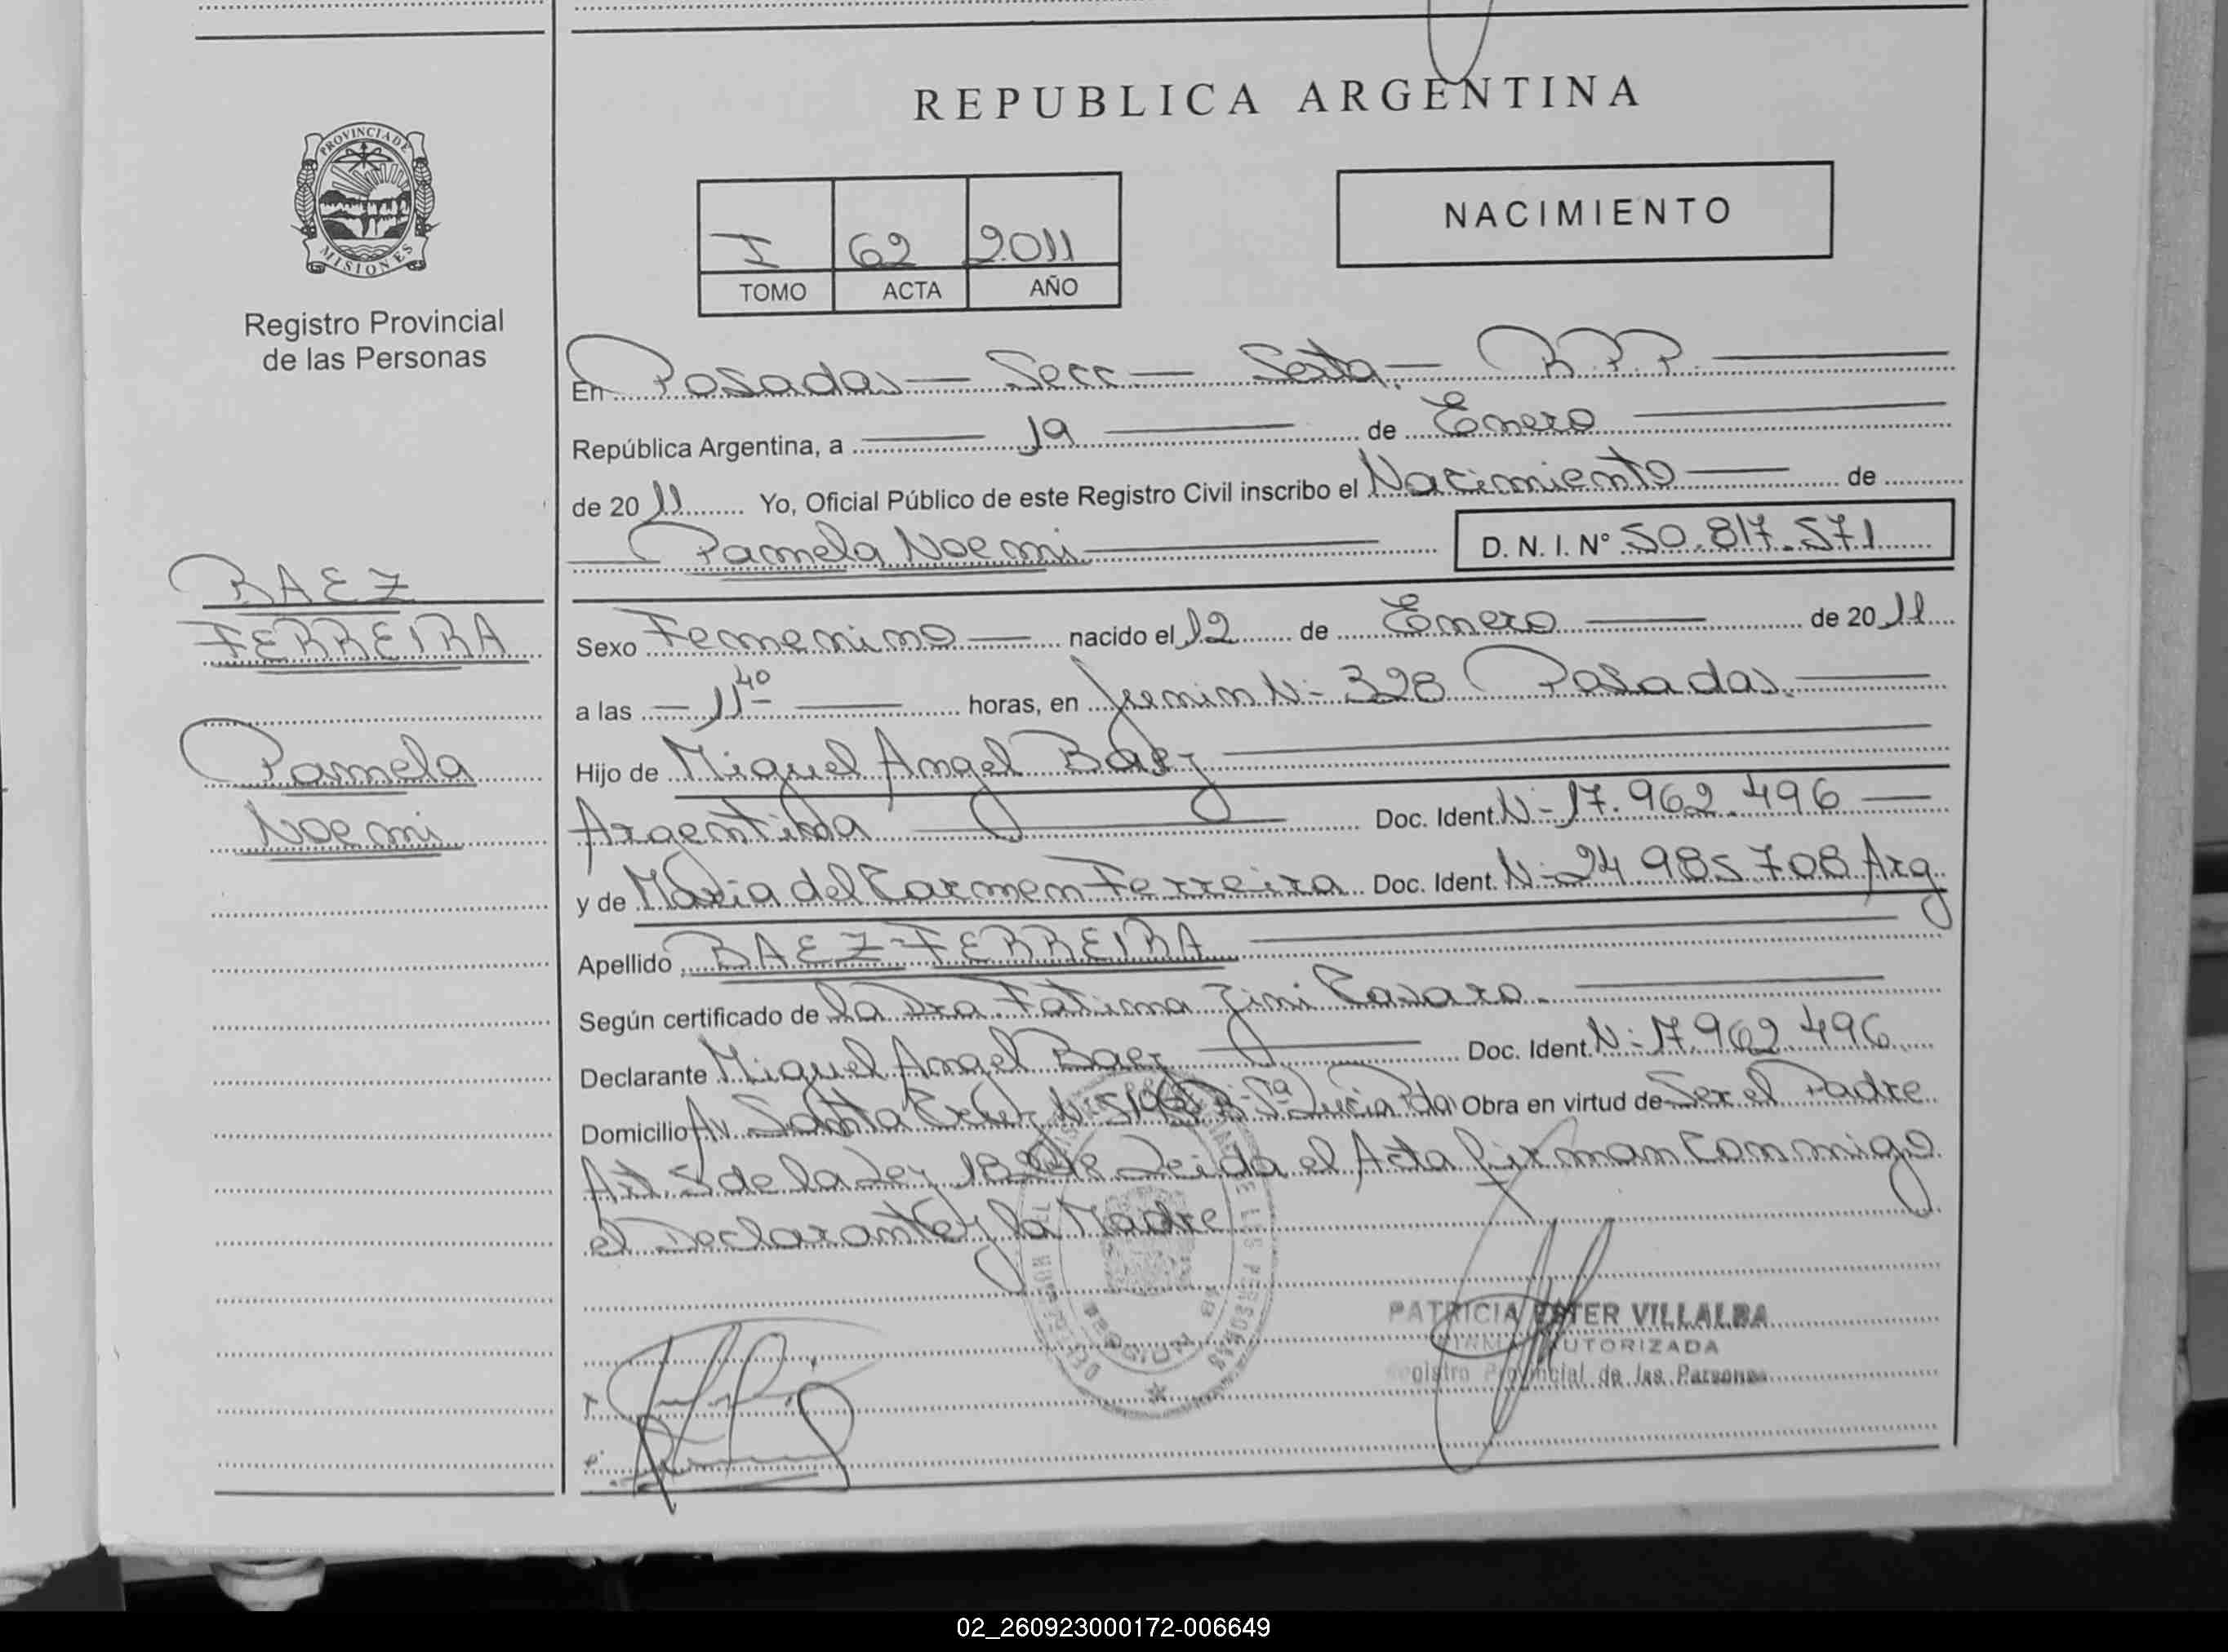 REPUBLICA ARGENTINA
PROVINCIA DE
MISIONES
Registro Provincial
de las Personas
NACIMIENTO
I 62 2011
TOMO ACTA AÑO
En Posadas — Secc — Sexta. — R.P.P.
República Argentina, a 19 de Enero
de 2011 Yo, Oficial Público de este Registro Civil inscribo el Nacimiento de
Pamela Noemi D. N. I. N° 50.817.571
BAEZ
FERREIRA
Pamela
Noemi
Sexo Femenino nacido el 12 de Enero de 2011
a las 11 40 horas, en Junin N- 328 Posadas.
Hijo de Miguel Angel Baez
Argentina Doc. Ident. N- 17.962.496
y de Maria del Carmen Ferreira Doc. Ident. N- 24.985.708 Arg.
Apellido BAEZ-FERREIRA
Según certificado de la Dra. Fatima Jini
Declarante Miguel Angel Baez Doc. Ident. N- 17.962.496
Domicilio Av Santa Cruz N- Sta Lucia Pda Obra en virtud de Ser el Padre
Art. 5 de la Ley 18248 Leida el Acta firman conmigo
el Declarante y la Madre
PATRICIA ESTER VILLALBA
FIRMA AUTORIZADA
Registro Provincial de las Personas
02_260923000172-006649